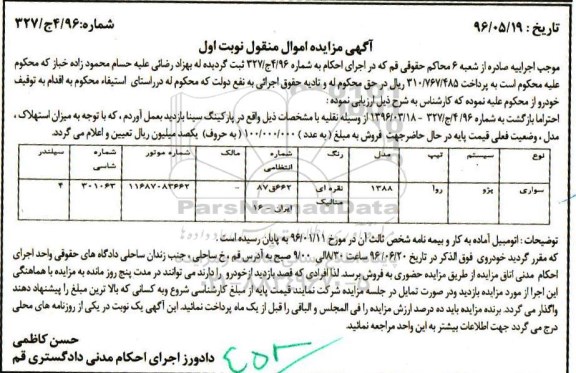 تاریخ : ۹۶/۰۵/۱۹
شماره:۴/۹۶ج/۳۲۷
آگهی مزایده اموال منقول نوبت اول
موجب اجراییه صادره از شعبه ۶ محاکم حقوقی قم که در اجرای احکام به شماره ۴/۹۶ج/۳۲۷ ثبت گردیده له بهزاد رضائی علیه حسام محمود زاده خباز که محکوم
علیه محکوم است به پرداخت ۳۱۰/۷۶۷/۴۸۵ ریال در حق محکوم له و تادیه حقوق اجرائی به نفع دولت که محکوم له درراستای استیفاء محکوم به اقدام به توقیف
خودرو از محکوم علیه نموده که کارشناس به شرح ذیل ارزیابی نموده :
احتراما بازگشت به شماره ۴/۹۶ج/۳۲۷ - ۱۳۹۶/۰۳/۱۸ از وسیله نقلیه با مشخصات ذیل واقع در پارکینگ سینا بازدید بعمل آوردم ، که با توجه به میزان استهلاک ،
مدل ، وضعیت فعلی قیمت پایه در حال حاضرجهت فروش به مبلغ ( به عدد ) ۱۰۰/۰۰۰/۰۰۰ ( به حروف) یکصد میلیون ریال تعیین و اعلام می گردد.
نوع سیستم تیپ مدل رنگ شماره انتظامی مالک شماره موتور شماره شاسی سیلندر
سواری پژو روآ ۱۳۸۸ نقره ای متالیک ۶۶۲ق۸۷ ایران ۱۶ - ۱۱۶۸۷۰۸۳۶۶۲ ۳۰۱۰۶۳ ۴
ParsNamadData
توضیحات : اتومبیل آماده به کار و بیمه نامه شخص ثالث آن در مورخ ۹۶/۰۱/۱۱ به پایان رسیده است .
که مقرر گردید خودروی فوق الذکر در تاریخ ۹۶/۰۶/۲۰ ساعت ۸/۳۰الی ۹/۰۰ صبح به آدرس قم خ ساحلی جنب زندان ساحلی دادگاه های حقوقی واحد اجرای
احکام مدنی اتاق مزایده از طریق مزایده حضوری به فروش برسد. لذا افرادی که قصد بازدید ازخودرو را دارند می توانند در مدت پنج روز مانده به مزایده با هماهنگی
این اجرا از مورد مزایده بازدید ودر صورت تمایل در جلسه مزایده شرکت نمایند قیمت پایه از مبلغ کارشناسی شروع وبه کسانی که بالا ترین مبلغ را پیشنهاد دهند
واگذار می گردد. برنده مزایده باید ده درصد ارزش مزایده را فی المجلس و الباقی را قبل از یک ماه پرداخت نمائید. این آگهی یک نوبت در یکی از روزنامه های محلی
درج می گردد جهت اطلاعات بیشتر به این واحد مراجعه نمائید.
حسن کاظمی
دادورز اجرای احکام مدنی دادگستری قم
۴۵۳